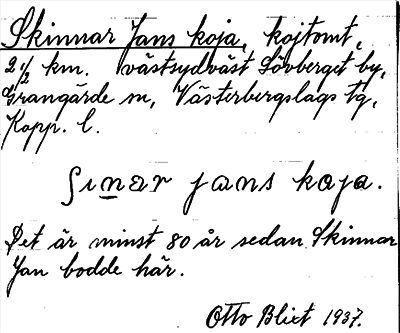 Skinnar Jans koja, kojtomt,
2 1/2 km. västsydväst Lövberget by,
Grangärde sn, Västerbergslags tg,
Kopp. l.
ʃinar jans kɷja.
Det är minst 80 år sedan Skinnar
Jan bodde här.
Otto Blixt 1937.